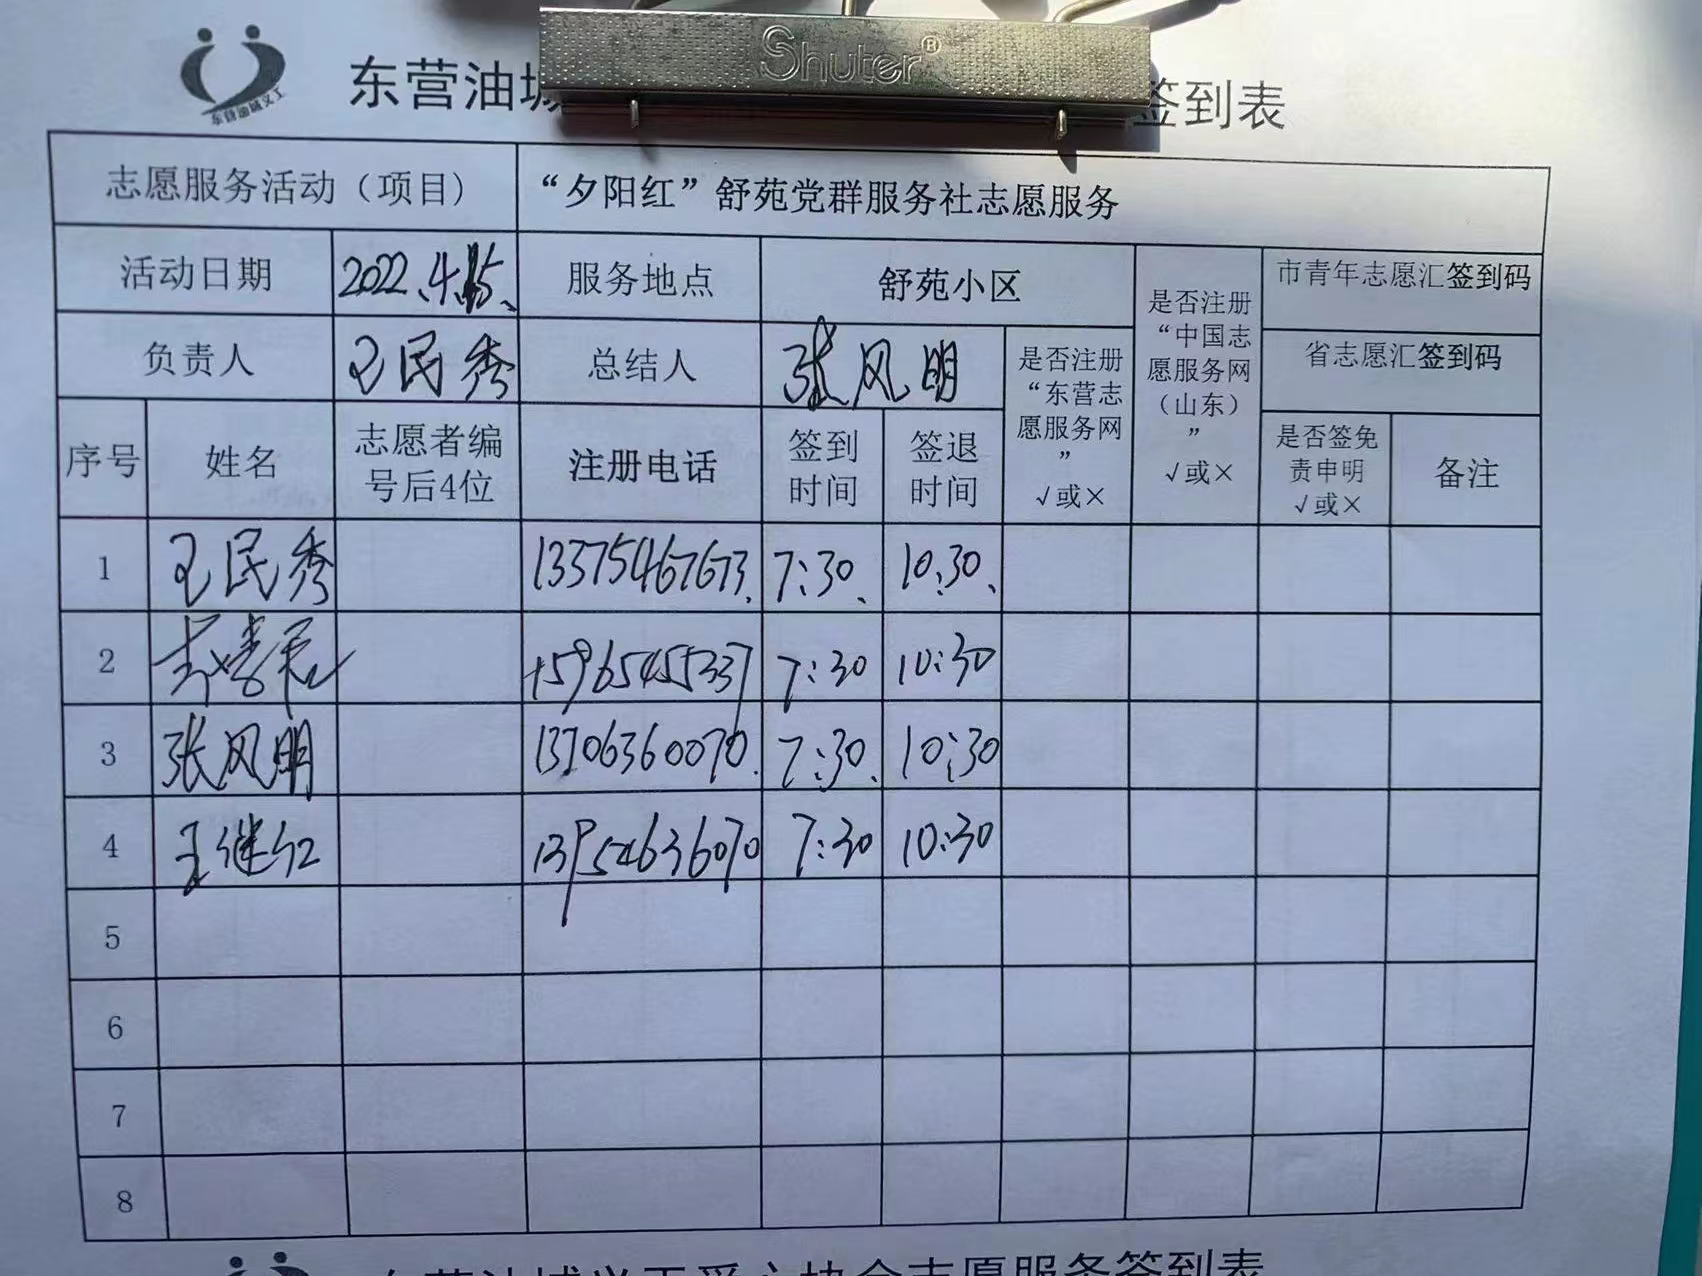 Shuter®
东营油城义工
东营油 签到表
志愿服务活动（项目） “夕阳红”舒苑党群服务社志愿服务
活动日期 2022.4. 服务地点 舒苑小区 是否注册“中国志愿服务网（山东）” √或× 市青年志愿汇签到码
负责人 王民秀 总结人 张风明 是否注册“东营志愿服务网” √或× 省志愿汇签到码
序号 姓名 志愿者编号后4位 注册电话 签到时间 签退时间 是否签免责申明 √或× 备注
1 王民秀 13375467673. 7:30、 10:30、
2 15965455337 7:30 10:30
3 张风明 13706360070. 7:30、 10:30
4 王继红 13954636070 7:30 10:30
5
6
7
8
东营油城义工爱心协会志愿服务签到表